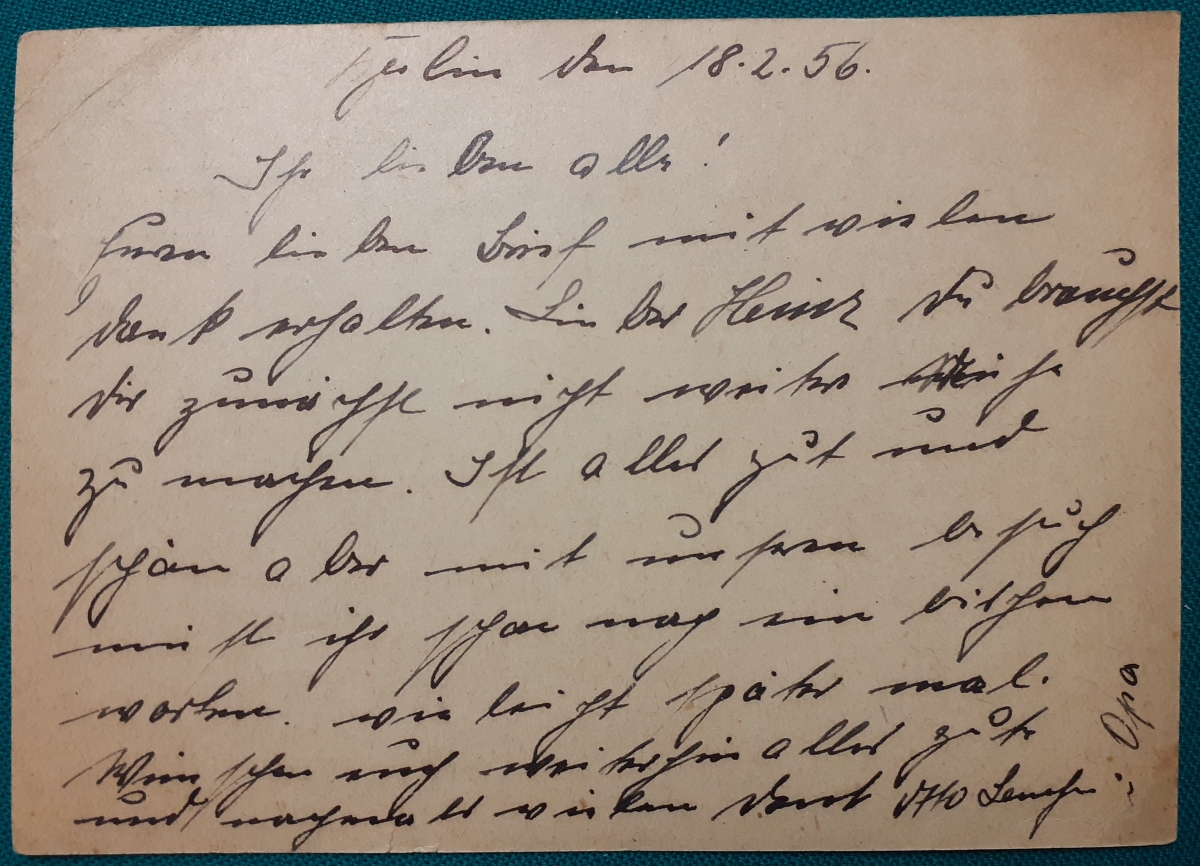 Berlin den 18.2.56.
Ihr lieben alle!
Euren lieben Brief mit vielen
dank erhalten. Lieber Heinz du brauchst
dir zunächst nicht weiter Mühe
zu machen. Ist alles gut und
schön aber mit unseren besuch
müst ihr schon noch ein bischen
warten. vieleicht später mal.
Wünschen euch weiterhin alles gute
und nochmals vielen dank Otto
Opa